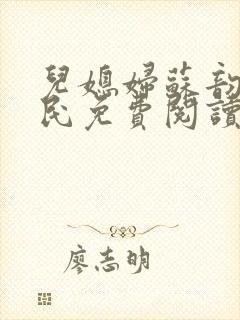 兒媳婦蘇韵
民免費閱讀
廖志明